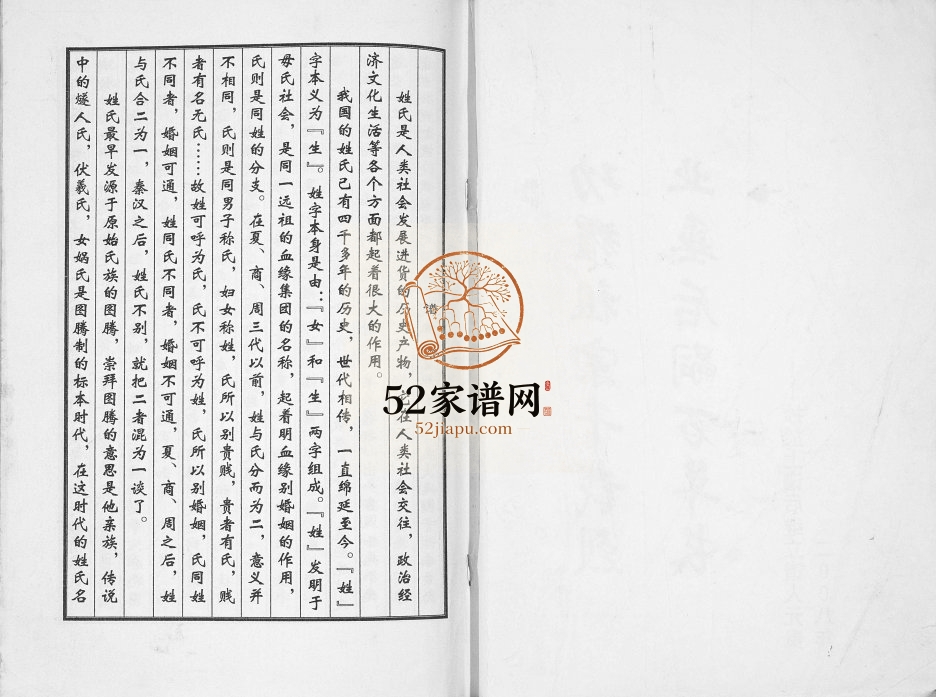 姓氏是人类社会发展进货的历史产物，它在人类社会交往，政治经
济文化生活等各个方面都起着很大的作用。
我国的姓氏已有四千多年的历史，世代相传，一直绵延至今。『姓』
字本义为『生』。姓字本身是由：『女』和『生』两字组成。『姓』发明于
母氏社会，是同一远祖的血缘集团的名称，起着明血缘别婚姻的作用，
氏则是同姓的分支。在夏、商、周三代以前，姓与氏分而为二，意义并
不相同，氏则是同男子称氏，妇女称姓，氏所以别贵贱，贵者有氏，贱
者有名无氏……故姓可呼为氏，氏不可呼为姓，氏所以别婚姻，氏同姓
不同者，婚姻可通，姓同氏不同者，婚姻不可通，夏、商、周之后，姓
与氏合二为一，秦汉之后，姓氏不别，就把二者混为一谈了。
姓氏最早发源于原始氏族的图腾，崇拜图腾的意思是他亲族，传说
中的燧人氏，伏羲氏，女娲氏是图腾制的标本时代，在这时代的姓氏名
谱
52家谱网
52jiapu.com